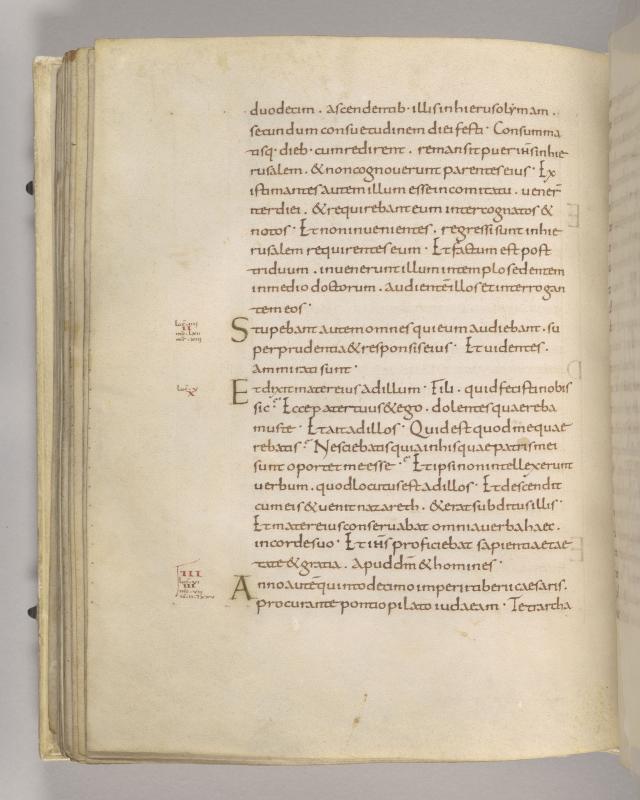 duodecim . ascendentib· illis inhierusolymam .
secundum consuetudinem diei festi · Consumma
tisq· dieb· cumredirent . remansit puer ihs inhie
rusalem . & noncognoverunt parentes eius · Ex
istimantes autem illum esse incomitatu . vener̄
iter diei . & requirebant eum inter cognatos &
notos · Et non invenientes . regressi sunt inhie
rusalem requirentes eum · Et factum est post
triduum . invenerunt illum intemplo sedentem
inmedio doctorum . audientē illos et interrogan
tem eos ·
Stupebant autem omnes qui eum audiebant . su
per prudentia & responsis eius · Et videntes .
ammirati sunt ·
Et dixit mater eius adillum · Fili . quid fecisti nobis
sic · Ecce pater tuus & ego . dolentes quaereba
mus te · Et ait adillos · Quid est quod me quae
rebatis · Nesciebatis quia inhis quae patris mei
sunt oportet me esse · Et ipsi non intellexerunt
verbum . quod locutus est adillos · Et descendit
cum eis & venit nazareth . & erat subditus illis ·
Et mater eius conservabat omnia verba haec .
incorde suo · Et ihs proficiebat sapientia etae
tate & gratia . apud dm̄ & homines ·
III
Anno autē quintodecimo imperii tiberii caesaris .
procurante pontio pilato iudaeam · Tetrarcha